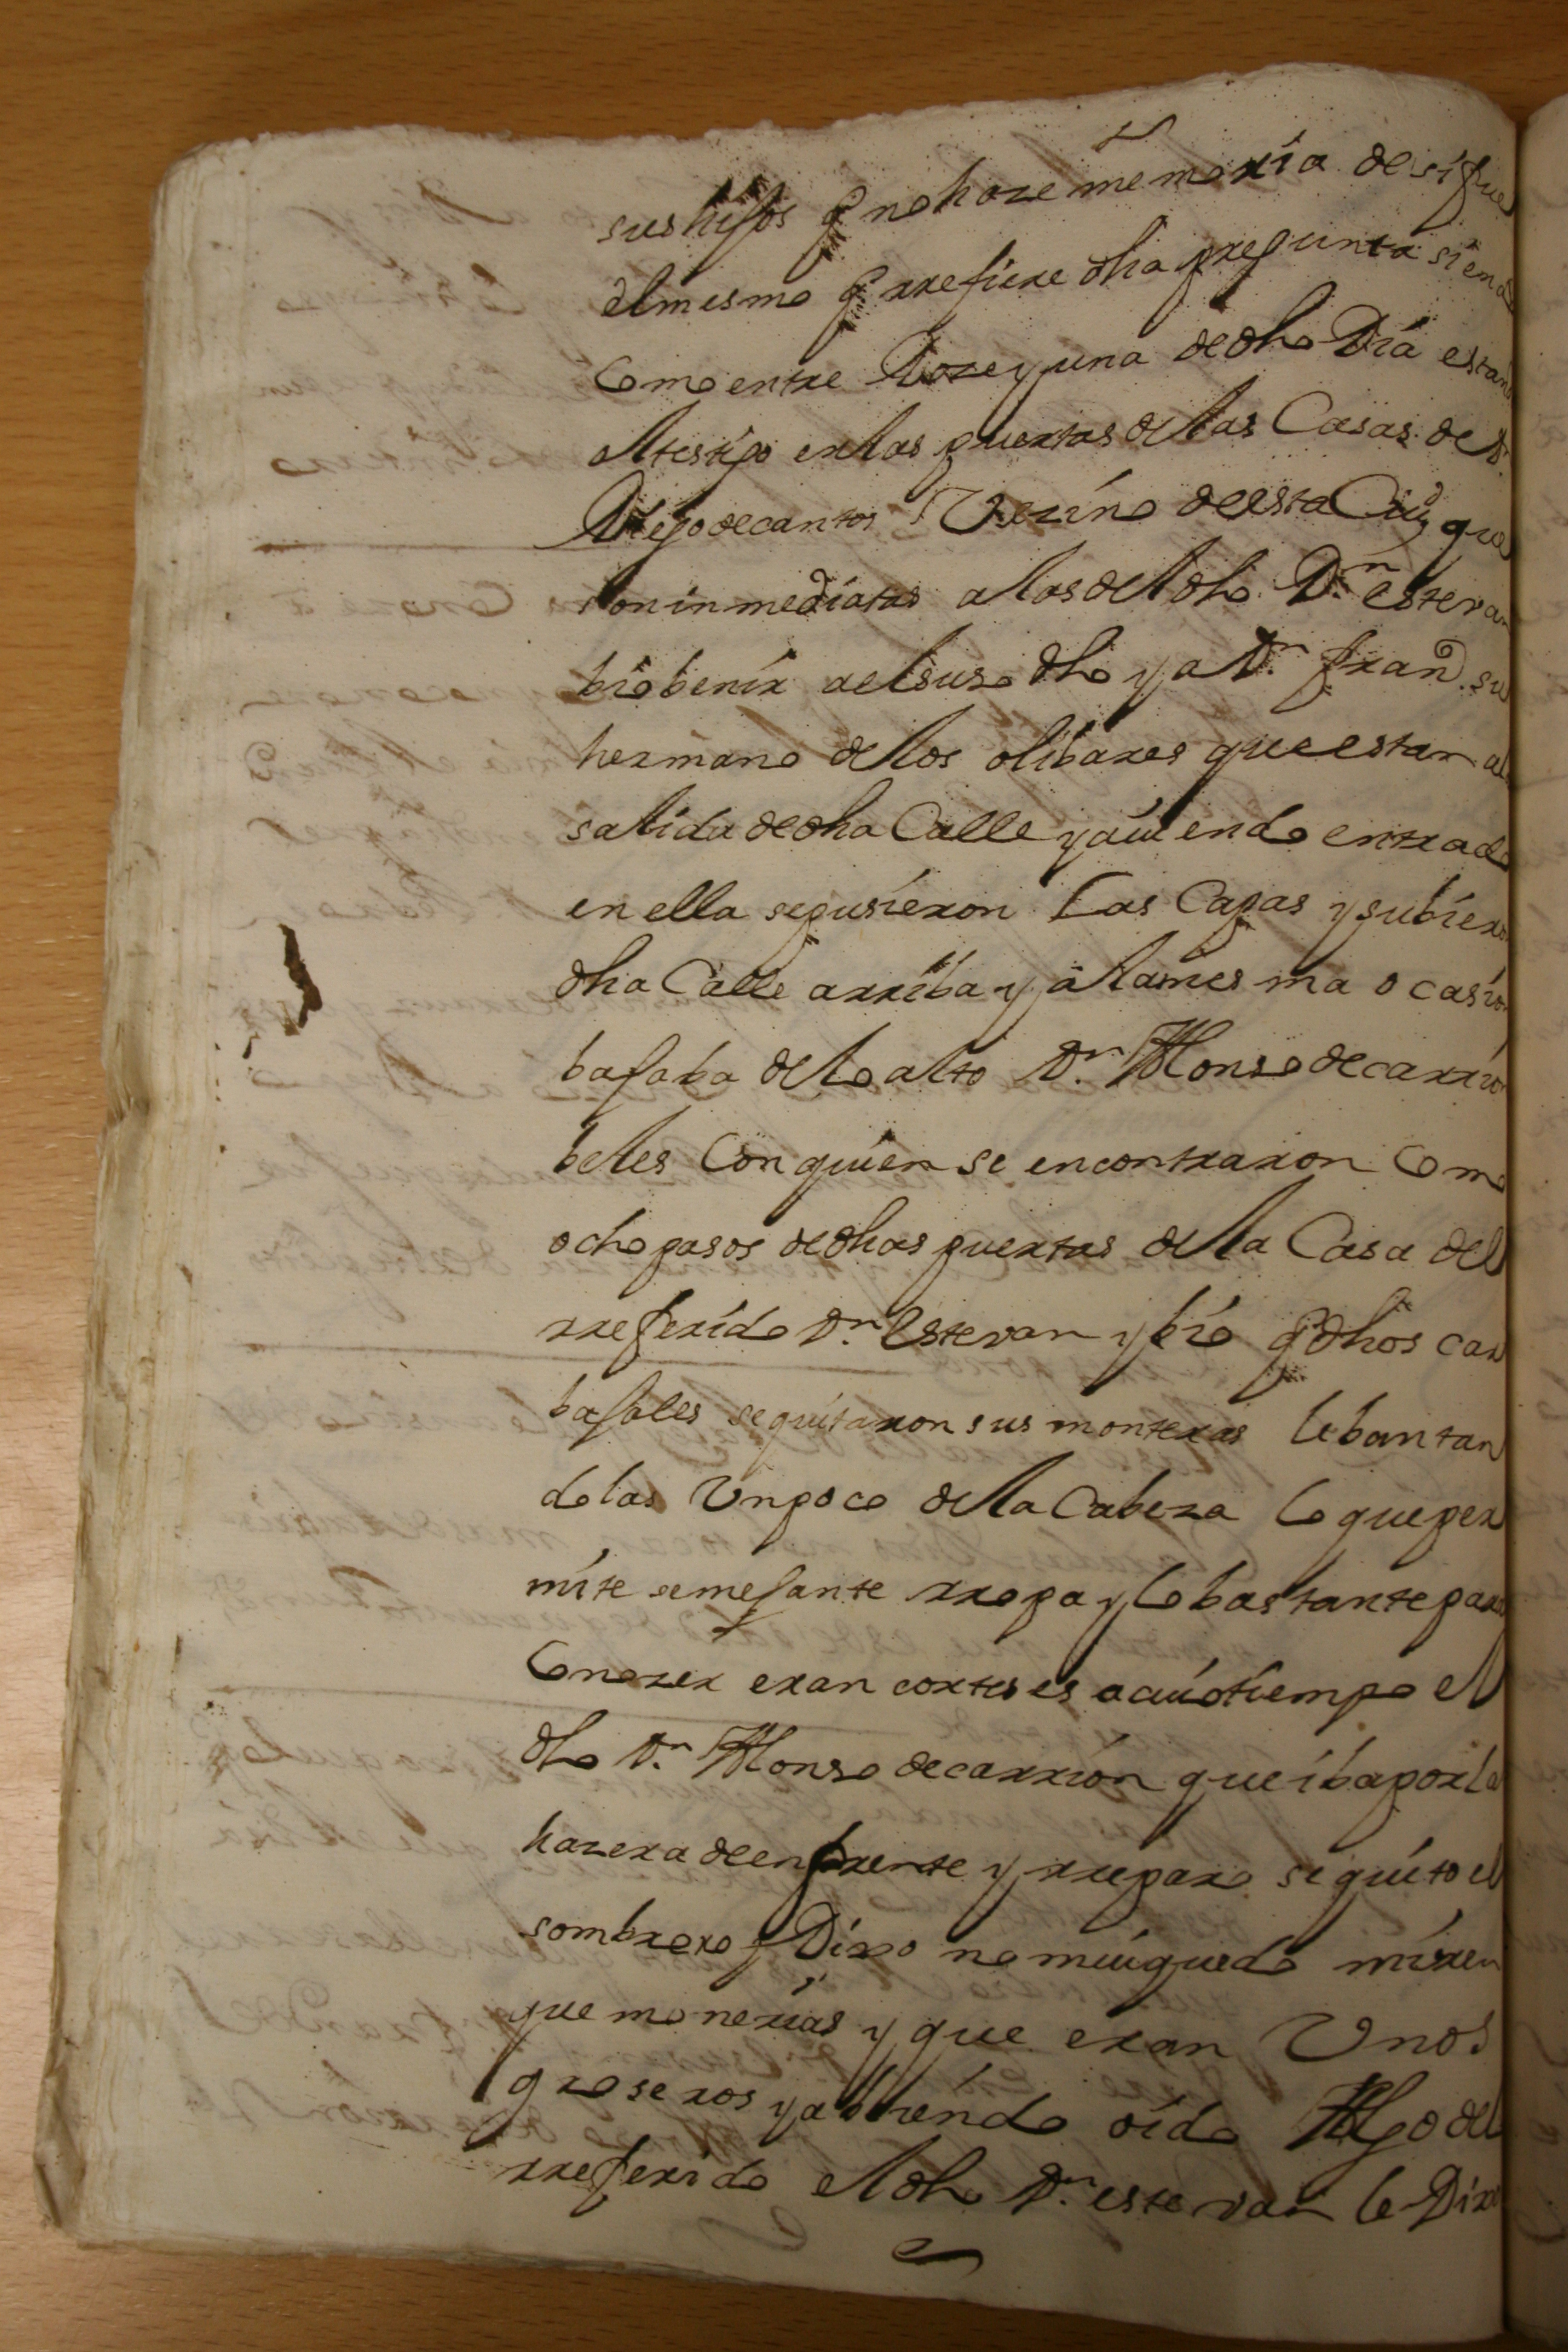 sus hijos q no haze memoria de si fue
el mesmo q rrefiere dha pregunta siend
Como entre Doze y una de dho Dia estan
el testigo en las puertas de las Casas de Dn
Diego de cantos Vezino de esta Ciud que
son inmediatas a las del dho Dn estevan
bio benir al suso dho y a Dn franco su
hermano de los olibares que estan a la
salida de dha Calle y auiendo entrado
en ella se pusieron Las Capas y subiero
dha Calle arriba y a la mesma ocasion
bajaba de lo alto Dn Alonso de carrion
beles Con quien se encontraron Como
ocho pasos de dhas puertas de la Casa del
rreferido Dn Estevan y bio q dhos car
bajales se quitaron sus monteras lebantan
dolas Un poco de la Cabeza lo que per
mite semejante rropa y lo bastante para
Conozer eran corteses a cuio tiempo el
dho Dn Alonso de carrion que iba por la
hazera de enfrente y rreparo se quito el
sombrero y Dixo no mui quedo miren
que monerias y que eran Unos
groseros y abiendo oido Algo del
rreferido el dho Dn estevan le Dixo